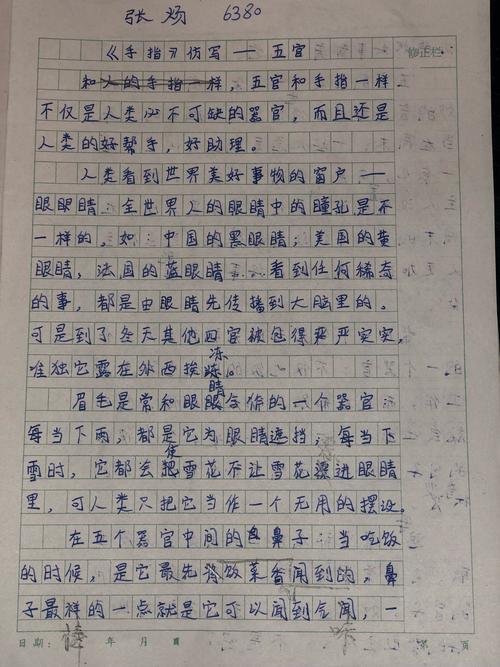 张炀 6380
《手指》仿写——五官
修正栏
和人的手指一样，五官和手指一样
不仅是人类必不可缺的器官，而且还是
人类的好帮手，好助理。
人类看到世界美好事物的窗户——
眼眼睛：全世界人的眼睛中的瞳孔是不
一样的，如：中国的黑眼睛；美国的黄
眼睛，法国的蓝眼睛……看到任何稀奇
的事，都是由眼睛先传播到大脑里的。
可是到了冬天其他四官被包得严严实实，
唯独它露在外面挨冻。
眉毛是常和眼睛合作的一个器官，
每当下雨，都是它为眼睛遮挡；每当下
雪时，它都会使雪花不让雪花漂进眼睛
里，可人类只把它当作一个无用的摆设。
在五个器官中间的鼻子：当吃饭
的时候，是它最先将饭菜香闻到的，鼻
子最棒的一点就是它可以闻到、闻，一
日期： 年 月 日 第 页
棒